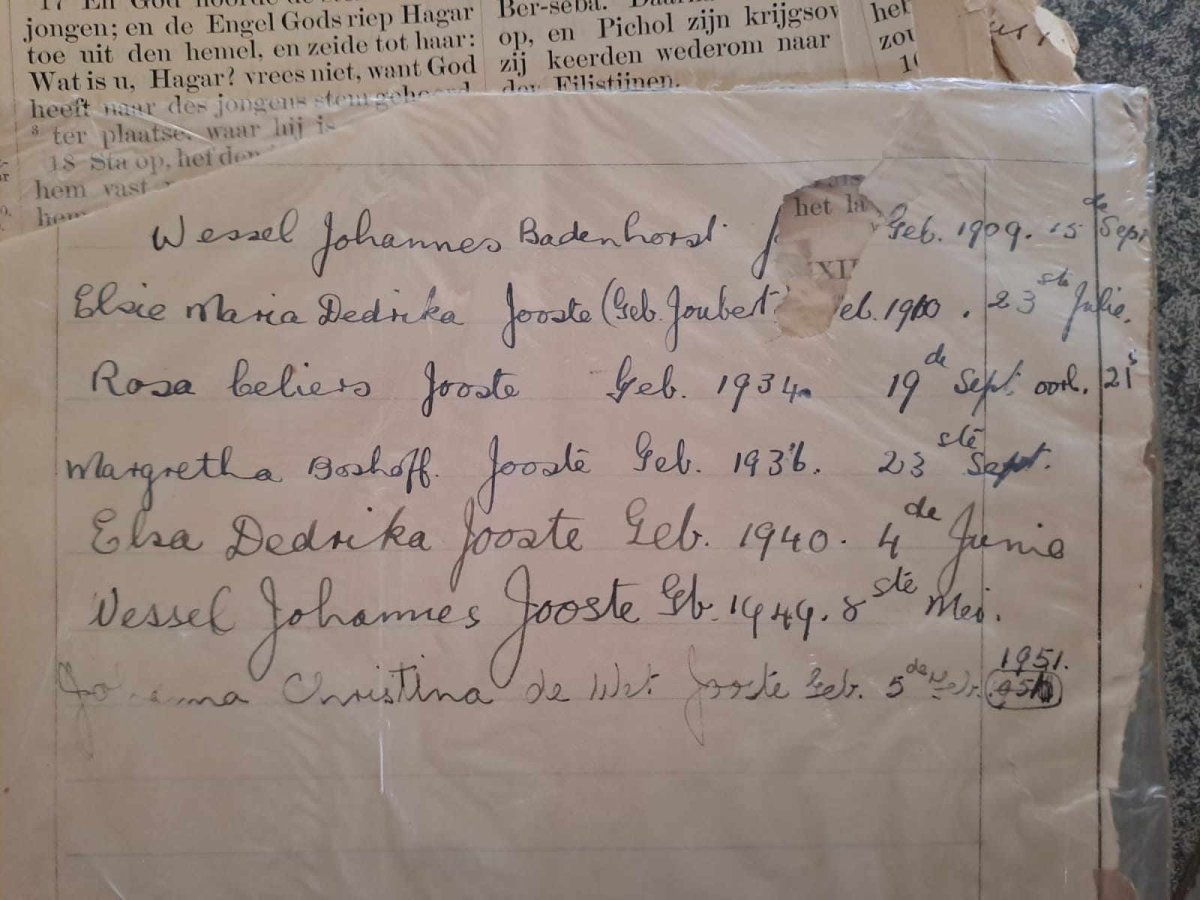 17 En God hoorde de
jongen; en de Engel Gods riep Hagar
toe uit den hemel, en zeide tot haar:
Wat is u, Hagar? vrees niet, want God
heeft naar des jongens stem gehoord
ter plaatse, waar hij is
18 Sta op, hef den
hem vast
Ber-seba.
op, en Pichol zijn krijgsov
zij keerden wederom naar
der Filistijnen.
het
zou
het la
XXII
Wessel Johannes Badenhorst J Geb. 1909. 15de Sept
Elsie Maria Dedrika Jooste (Geb. Joubert) eb. 1910. 23ste Julie.
Rosa Celiers Jooste Geb. 1934. 19de Sept. oorl. 21s
Margretha Boshoff. Jooste Geb. 1936. 23ste Sept.
Elsa Dedrika Jooste Geb. 1940. 4de Junie
Wessel Johannes Jooste Gb. 1949. 8ste Mei.
1951.
Johanna Christina de Wet Jooste Geb. 5de